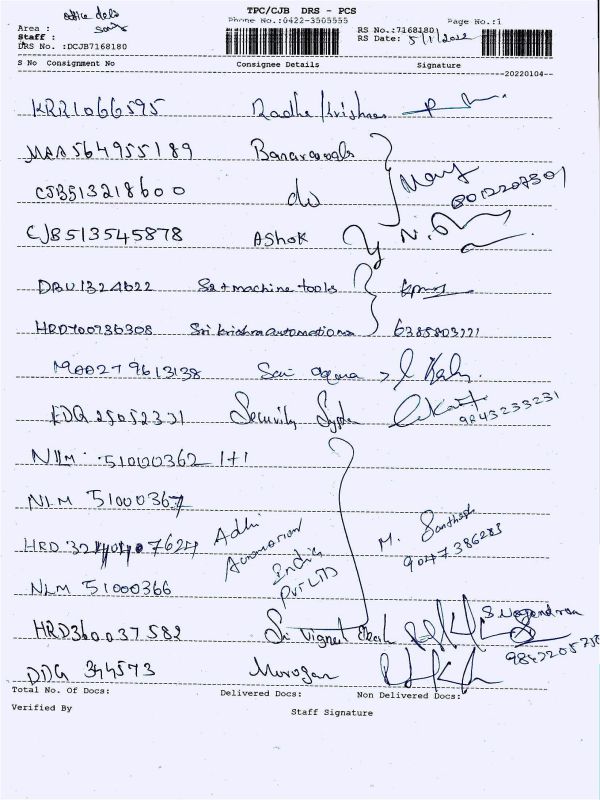 TPC/CJB DRS - PCS
office dels
Phone No.:0422-3505555
Page No.:1
Area :
Staff :
RS No.:7168180
RS Date: 5/1/2022
DRS No. :DCJB7168180
S No Consignment No Consignee Details Signature
20220104
KRR1066595 Radhe Krishna
MAA564955189 Banaraswals
CJB513218600 do
8012207301
CJB513545878 Ashok
DBU1324622 Sri machine tools
HRD700736308 Sri krishna automations 6385803221
MAA279613138 Sai
KDQ25052331 Security System
9843233231
NLM 51000362 1+1
NLM 51000367
HRD 7624 Adhi
Automation
India
Pvt LTD
M. Santhosh
9047386283
NLM 51000366
HRD360037582 Sri Vignesh
S. Nagendran
DDG 344573 Murogan
Total No. Of Docs: Delivered Docs: Non Delivered Docs:
Verified By Staff Signature